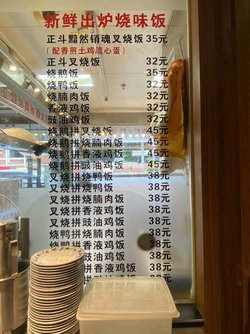 新鲜出炉烧味饭
正斗黯然销魂叉烧饭35元
(配香煎土鸡流心蛋)
正斗叉烧饭 32元
烧鹅饭 35元
烧鸭饭 32元
烧腩肉饭 32元
香液鸡饭 32元
豉油鸡饭 32元
烧鹅拼叉烧饭 45元
烧鹅拼烧腩肉饭 45元
烧鹅拼香液鸡饭 45元
烧鹅拼豉油鸡饭 45元
叉烧拼烧鸭饭 38元
叉烧拼烧腩肉饭 38元
叉烧拼香液鸡饭 38元
叉烧拼豉油鸡饭 38元
烧鸭拼烧腩肉饭 38元
烧鸭拼香液鸡饭 38元
烧鸭拼豉油鸡饭 38元
拼香液鸡饭 38元
拼豉油鸡饭 38元